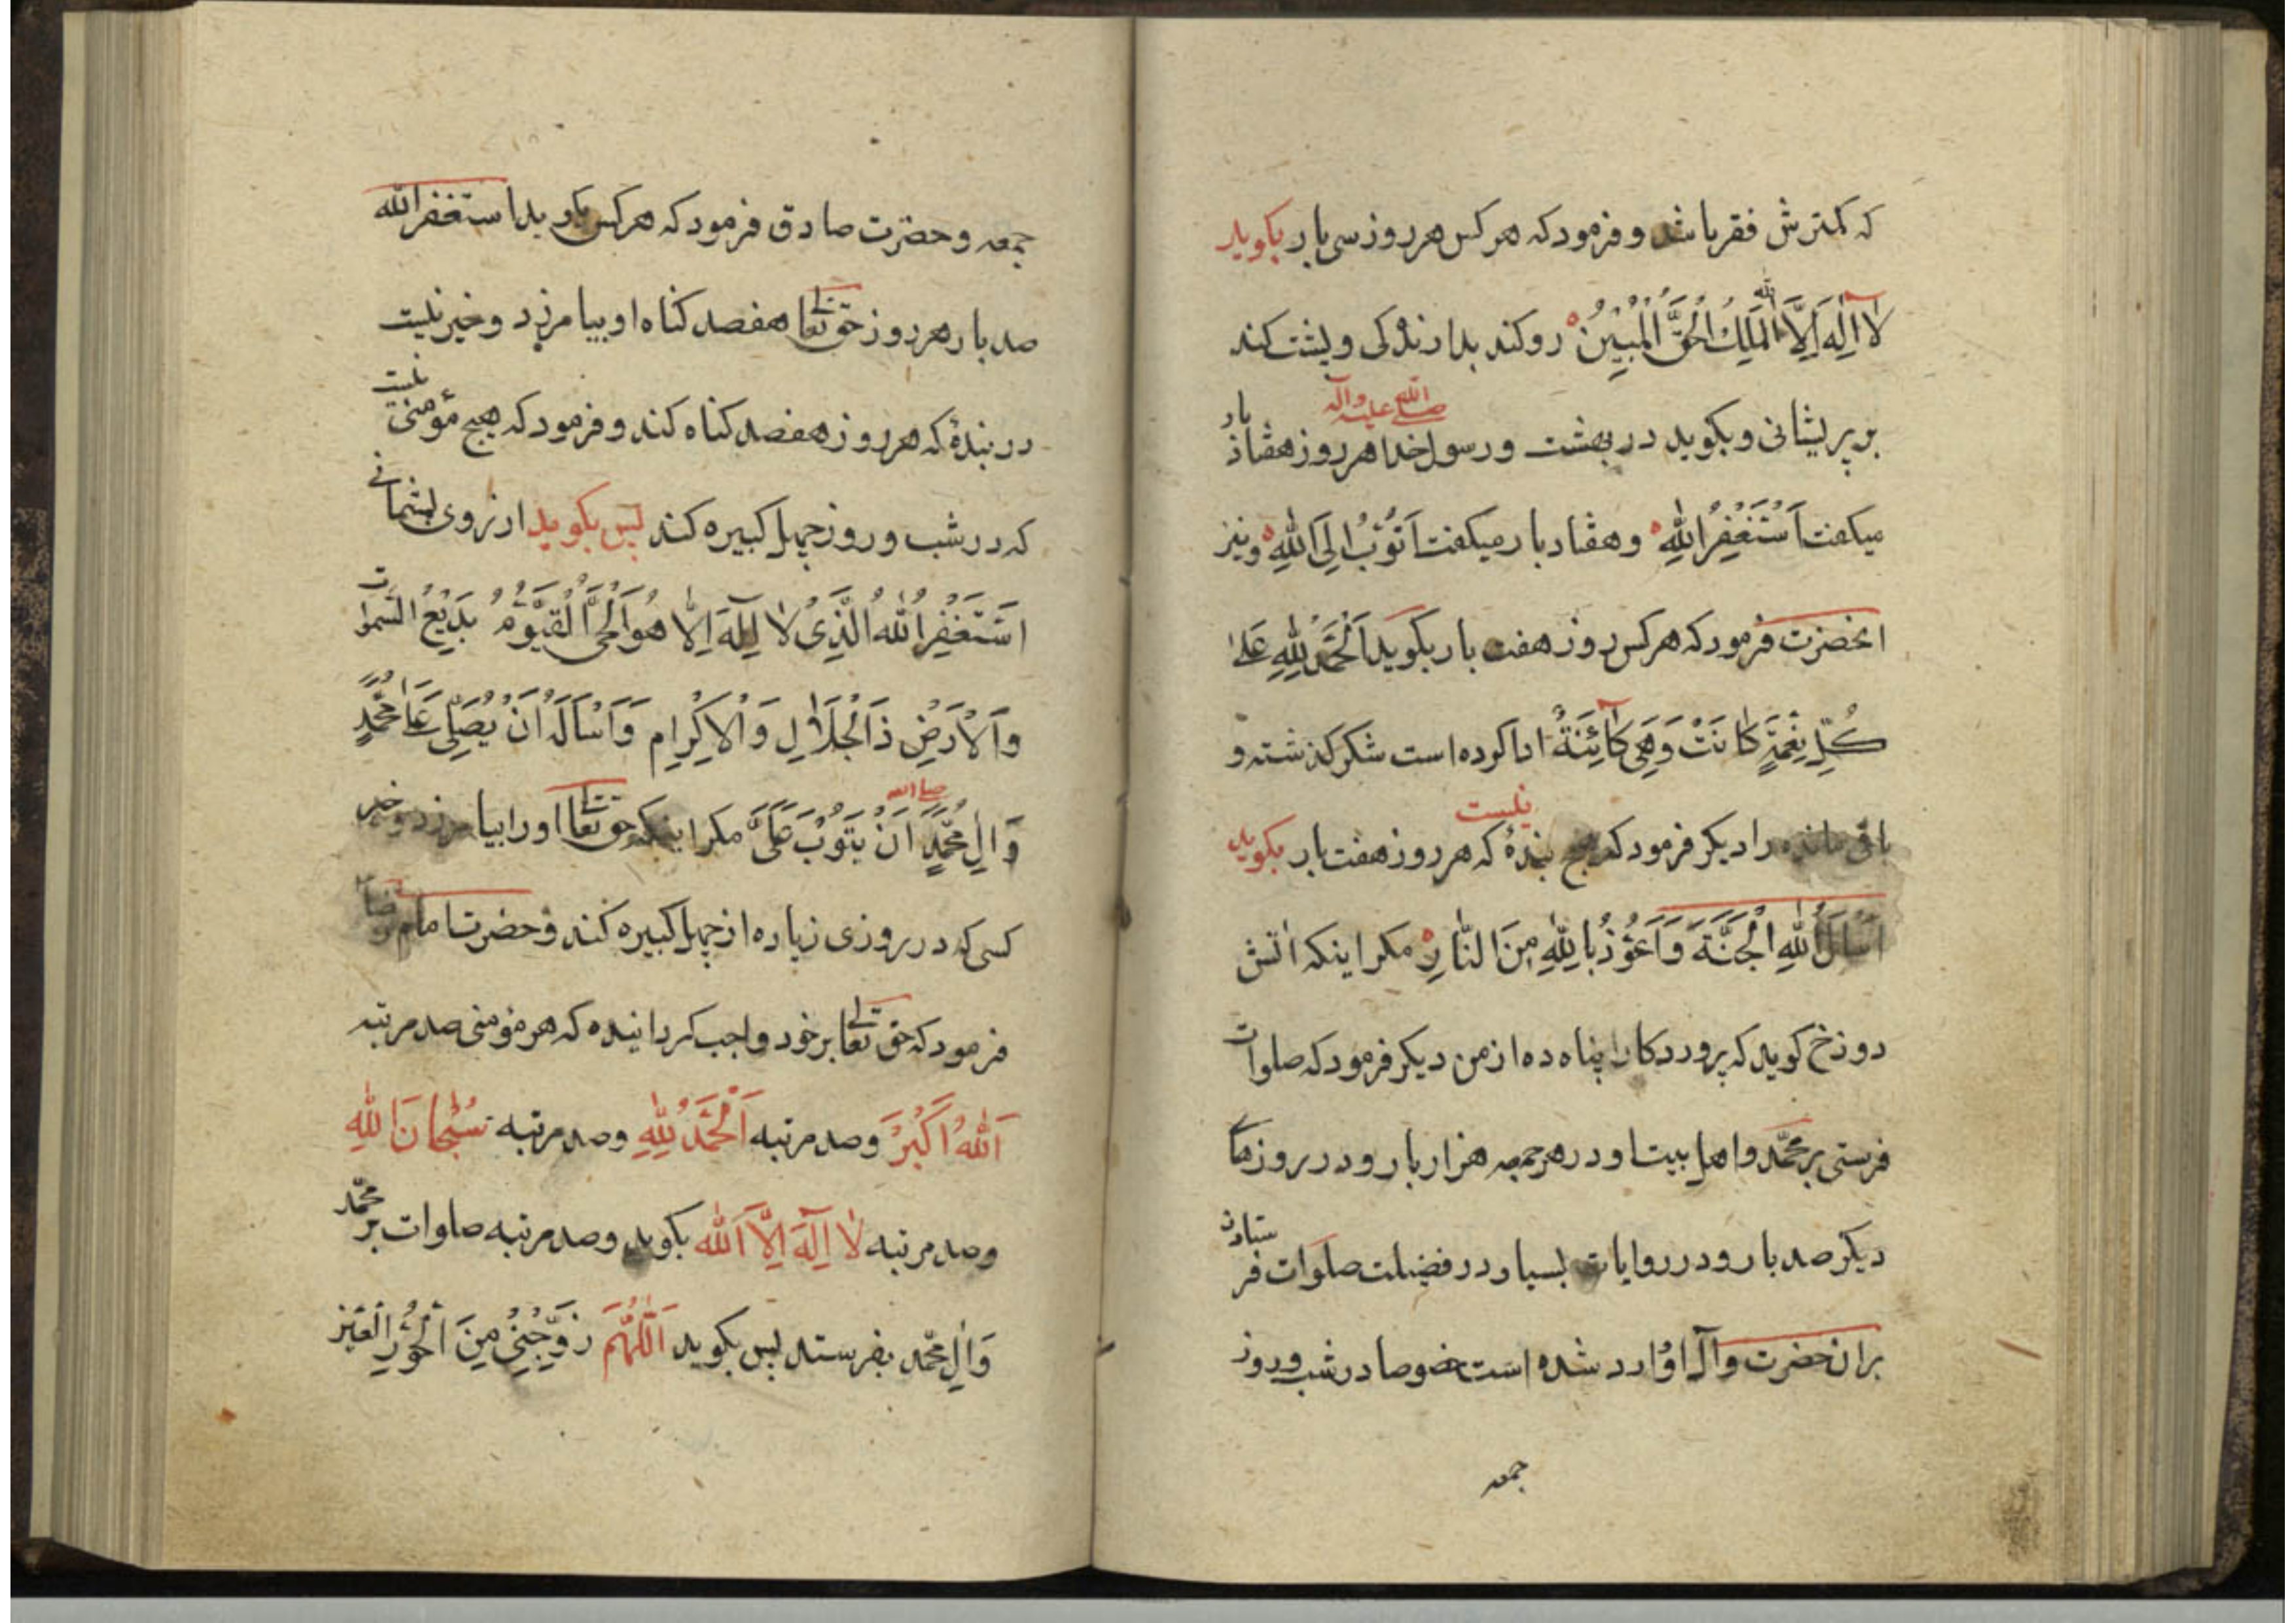 که کمترش فقر باشد و فرمود که هر کس هر روز سی بار بکوید
لَا اِلٰهَ اِلَّا اللّٰهُ الْمَلِكُ الْحَقُّ الْمُبِیْنُ رو کند بدار زندکی و پشت کند
بر پریشانی و بکوید در بهشت و رسول خدا صلی الله علیه وآله هر روز هفتاد بار
میکفت اَسْتَغْفِرُ اللّٰهِ و هفتاد بار میکفت اَتُوْبُ اِلَی اللّٰهِ و نیز
انحضرت فرمود که هر کس روز هفت بار بکوید اَلْحَمْدُ لِلّٰهِ عَلٰی
کُلِّ نِعْمَةٍ کَانَتْ وَهِیَ کَائِنَةٌ ادا کرده است شکر کذشته و
باقی مانده را دیکر فرمود که هیج بندهٔ نیست که هر روز هفت بار بکوید
اَسْاَلُ اللّٰهِ الْجَنَّةَ وَاَعُوْذُ بِاللّٰهِ مِنَ النَّارِ مکر اینکه اتش
دوزخ کوید که پروردکارا پناه ده از من دیکر فرمود که صلوات
فرستی بر محمّد و اهل بیت او در هر جمعه هزار بار و در روزهای
دیکر صد بار و در روایات بسیار در فضیلت صلوات فرستادن
بر انحضرت و آل او وارد شده است خصوصا در شب و روز
جمعه
جمعه و حضرت صادق فرمود که هر کس بکوید استغفر الله
صد بار هر روز حق تعالی هفصد کناه او بیامرزد و خیر نیست
در بندهٔ که هر روز هفصد کناه کند و فرمود که هیج مؤمنی نیست
که در شب و روز چهل کبیره کند پس بکوید از روی پشمانی
اَسْتَغْفِرُ اللّٰهَ الَّذِیْ لَا اِلٰهَ اِلَّا هُوَ الْحَیُّ الْقَیُّوْمُ بَدِیْعُ السَّمٰوات
وَالْاَرْضِ ذَا الْجَلَالِ وَالْاِکْرَامِ وَاَسْاَلُهُ اَنْ یُصَلِّیَ عَلٰی مُحَمَّدٍ
وَاٰلِ مُحَمَّدٍ صلی الله اَنْ یَتُوْبَ عَلَیَّ مکر اینکه حق تعالی او را بیامرزد و خیر
کسی که در روزی زیاده از چهل کبیره کند و حضرت امام رضا
فرمود که حق تعالی بر خود واجب کردانیده که هر مؤمنی صد مرتبه
اَللّٰهُ اَکْبَرْ و صد مرتبه اَلْحَمْدُ لِلّٰهِ و صد مرتبه سُبْحَانَ اللّٰهِ
و صد مرتبه لَا اِلٰهَ اِلَّا اللّٰه بکوید و صد مرتبه صلوات بر محمّد
وَاٰلِ محمّد بفرستد پس بکوید اَللّٰهُمَّ زَوِّجْنِیْ مِنَ الْحُوْرِ الْعَیْن